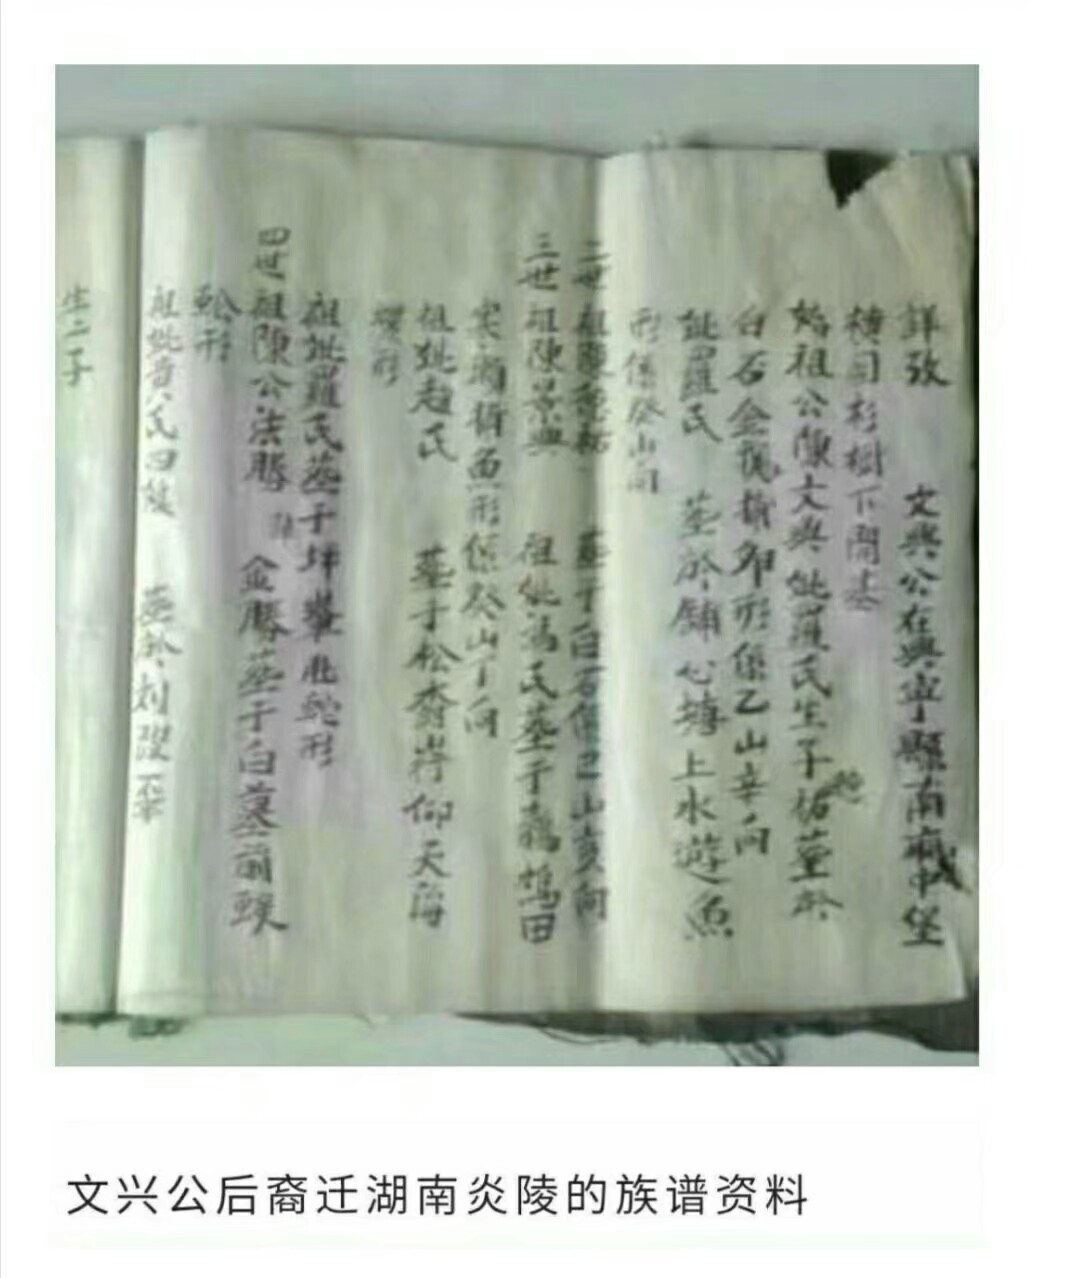 詳攷 文興公在興宁縣南廂中堡
樹下開基
始祖公陳文興 妣羅氏生子 德祐 葬於
白石 形係乙山辛向
妣羅氏 葬於鋪心塘上水遊魚
形係癸山向
二世祖陳德祐 葬于白石係巳山亥向
三世祖陳景興 祖妣 氏葬于 鴣田
面形係癸山丁向
祖妣趙氏 葬于松 仰天海
螺形
祖妣羅氏葬于坪 蛇形
四世祖陳公法勝 金勝葬于白墓前
形
祖妣黃氏四娘 葬於
生二子
文兴公后裔迁湖南炎陵的族谱资料